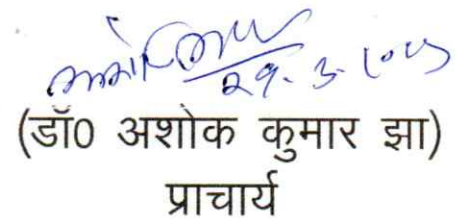 29.3.
(डॉ0 अशोक कुमार झा)
प्राचार्य